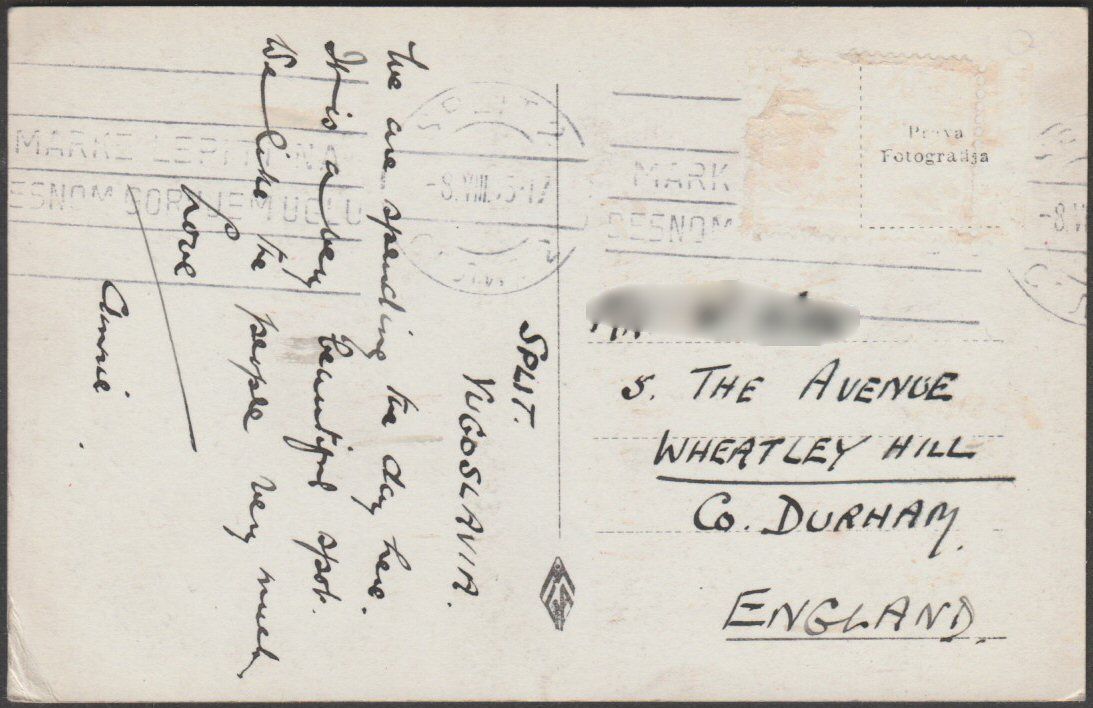 SPLIT.
YUGOSLAVIA.
We are spending the day here.
It is a very beautiful spot.
We like the people very much.
Love
Annie.
Prava
Fotografija
5. THE AVENUE
WHEATLEY HILL
Co. DURHAM,
ENGLAND,
SPLIT
-8.VIII.
MARKE LEPITE NA
DESNOM GORNJEM UGLU
MARK
DESNOM
-8.V